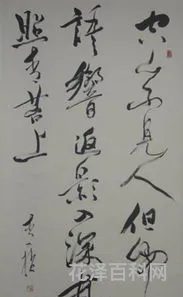 空山不見人但聞
語響返影入深林
照青苔上
花泽百科网